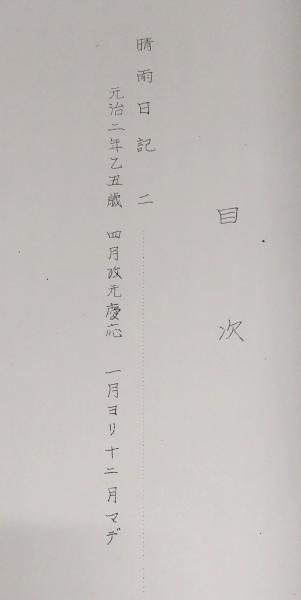 目次
晴雨日記 二
元治二年乙丑歳 四月改元慶応 一月ヨリ十二月マデ